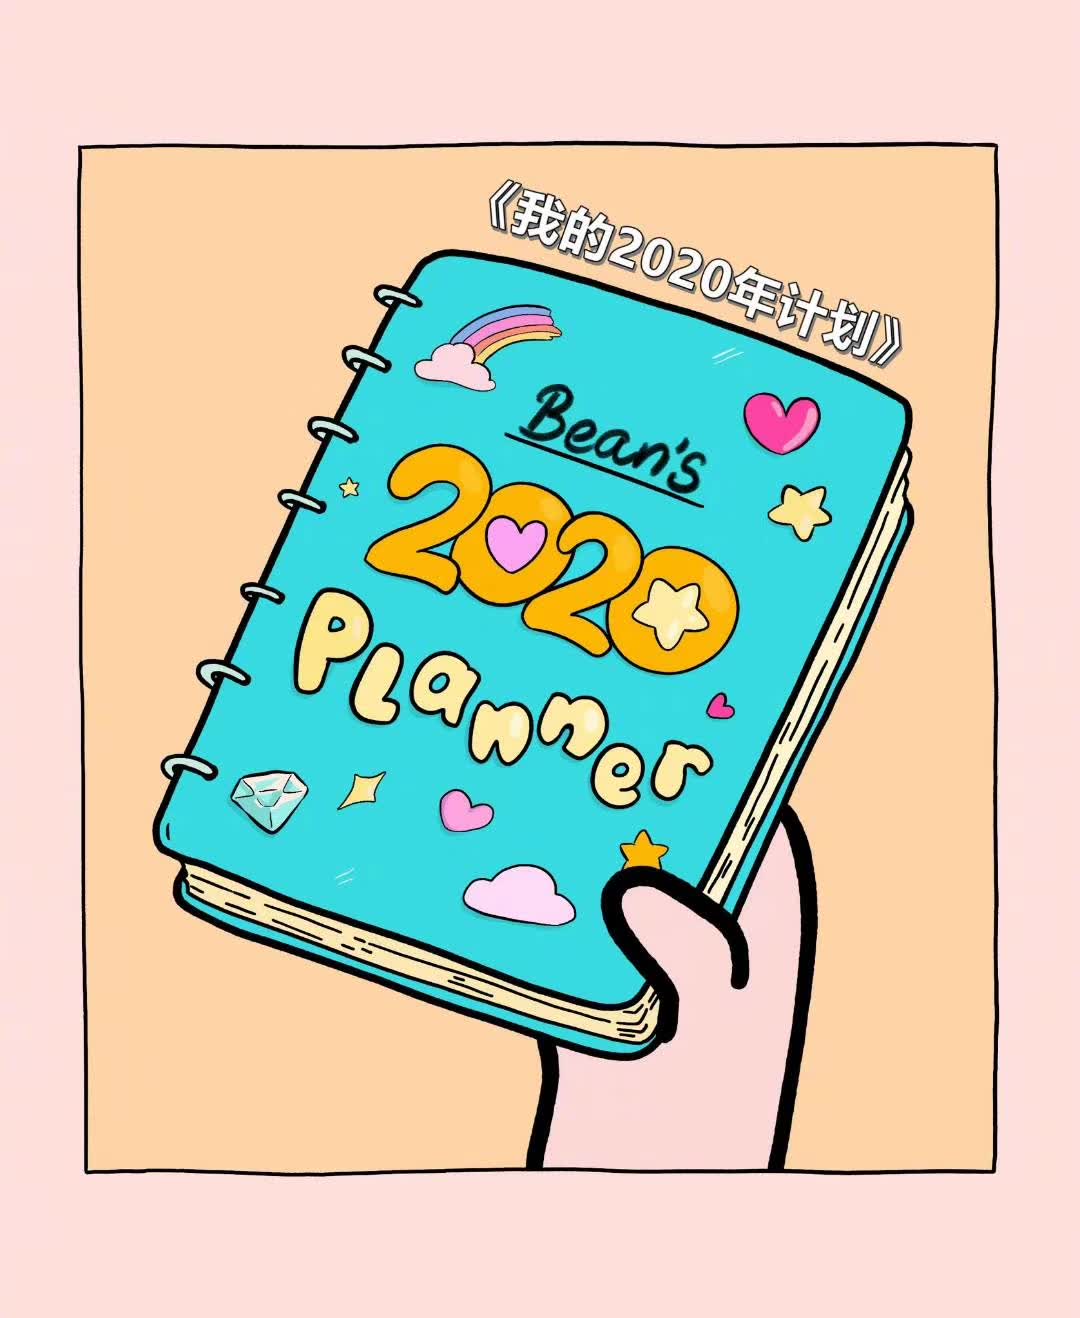 《我的2020年计划》
Bean's
2020
Planner